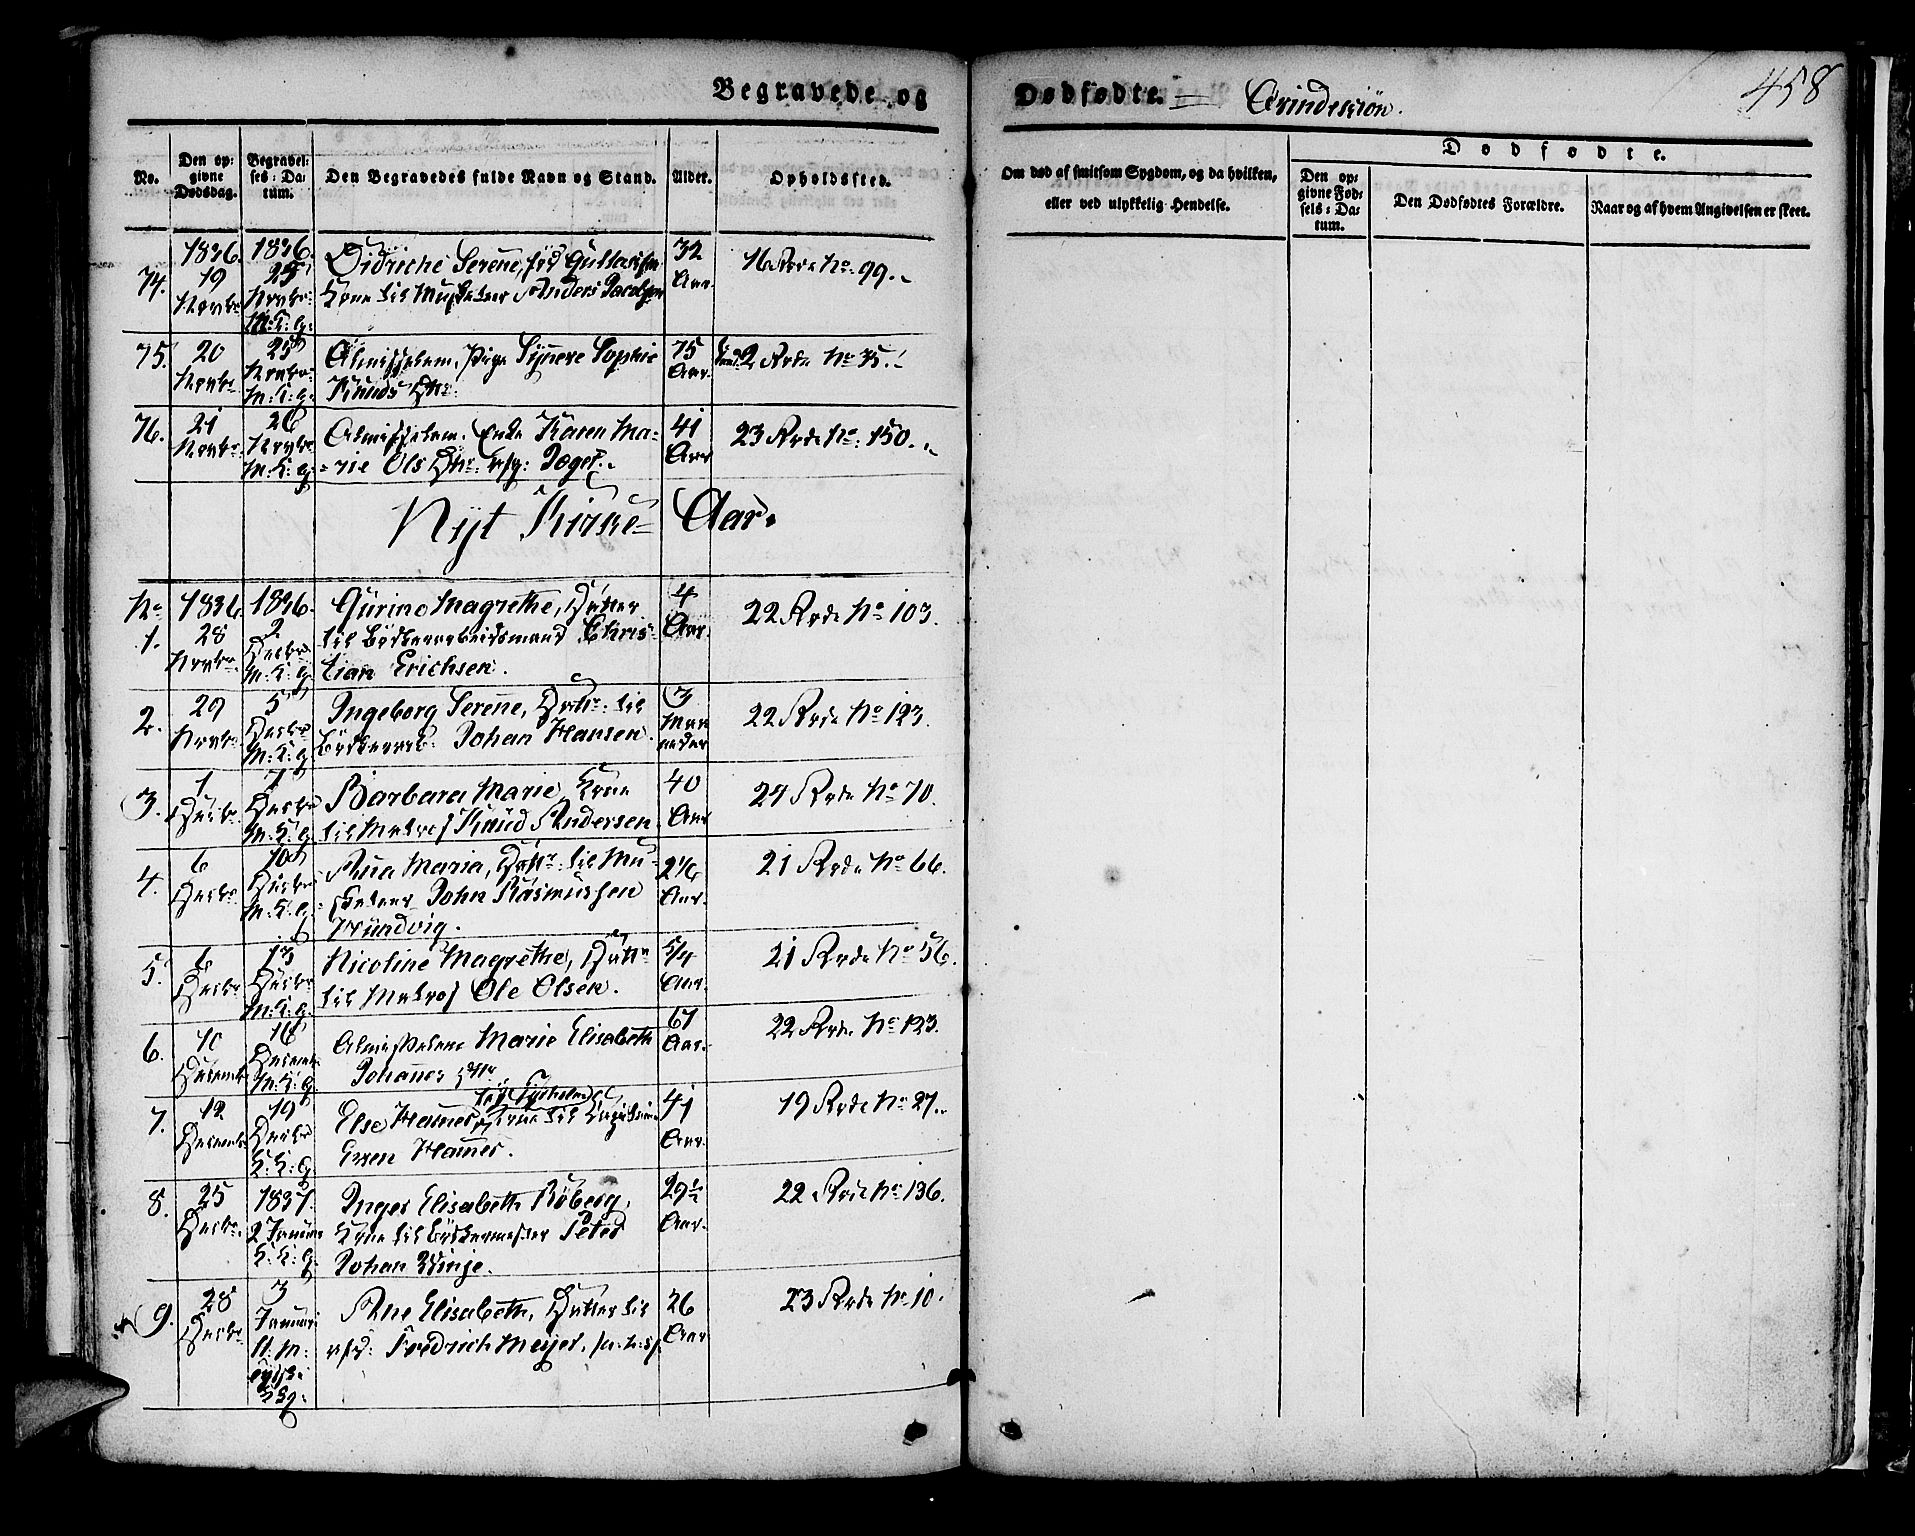 Begravede og Dødfødte. — Qvindekiøn.
458
No.
Den opgivne Dødsdag.
Begravelses-Datum.
Den Begravedes fulde Navn og Stand.
Alder.
Opholdssted.
Om død af smitsom Sygdom, og da hvilken, eller ved ulykkelig Hendelse.
Dødfødte.
Den opgivne Fødsels-Datum.
Den Dødfødtes Forældre.
Naar og af hvem Angivelsen er skeet.
74.
1836. 19 Novbr
1836. 25 Novbr: M: K: G:
Didriche Serene, fød Gullaksen
Kone til Musketeer Anders Jacobsen
32 Aar.
16 Rode No. 99.
75.
20 Novbr
25 Novbr: M: K: G:
Almisselem. Pige Synneve Sophie
Knuds Dtr:
75 Aar
2 Rode No 35.
76.
21 Novbr
26 Novbr M: K: G:
Almisselem. Enke Karen Ma-
rie Ols Dtr:
41 Aar
23 Rode No: 150.
Nyt Kirke- Aar.
No 1.
1836. 28 Novbr
1836. 2 Decbr M: K: G.
Gurine Magrethe, Datter
til Bødkerarbeidsmand Chris-
tian Erichsen.
4 Aar.
22 Rode No 103.
2.
29 Novbr
5 Decbr M: K: G.
Ingeborg Serene, Dattr: til
Bødkerarb: Johan Hansen.
3 Maaneder
22 Rode No 123.
3.
1 Decbr.
7 Decbr M: K: G.
Barbara Marie, Kone
til Matros Knud Andersen.
40 Aar
24 Rode No 70.
4.
6 Decbr
10 Decbr M: K: G.
Ana Maria, Dattr: til Mu-
sketeer John Rasmussen
Hundvig.
2 1/6 Aar.
21 Rode No 66.
5.
6 Decbr
13 Decbr M: K: G.
Nicoline Magrethe, Dattr
til Matros Ole Olsen.
5/4 Aar.
21 Rode No 56.
6.
10 Decembr
16 Decembr M: K: G.
Almisselem Marie Elisabeth
Johannes Dtr
67 Aar.
22 Rode No 123.
7.
12 Decembr
19 Decbr K: K: G.
Else Hannes, Kone til
Even Hannes.
41 Aar.
19 Rode No 27.
8.
25 Decbr.
1837. 2 Januar K: K: G.
Inger Elisabeth Röberg,
Kone til Bødkermester Peter
Johan Winje.
29 1/2 Aar.
22 Rode No 136.
9.
28 Decbr
3 Januari
Ane Elisabeth, Datter til
afd: Fredrich Meyer,
26 Aar
23 Rode No 10.